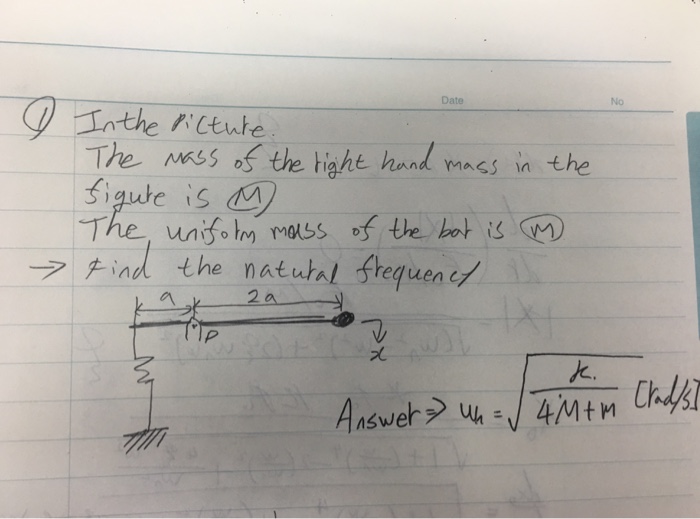 Date No
① In the picture.
The mass of the right hand mass in the
figure is M
The uniform mass of the bar is m
→ Find the natural frequency
a 2a
P
x
Answer ⇒ ωn = √(k / (4M+m)) [rad/s]